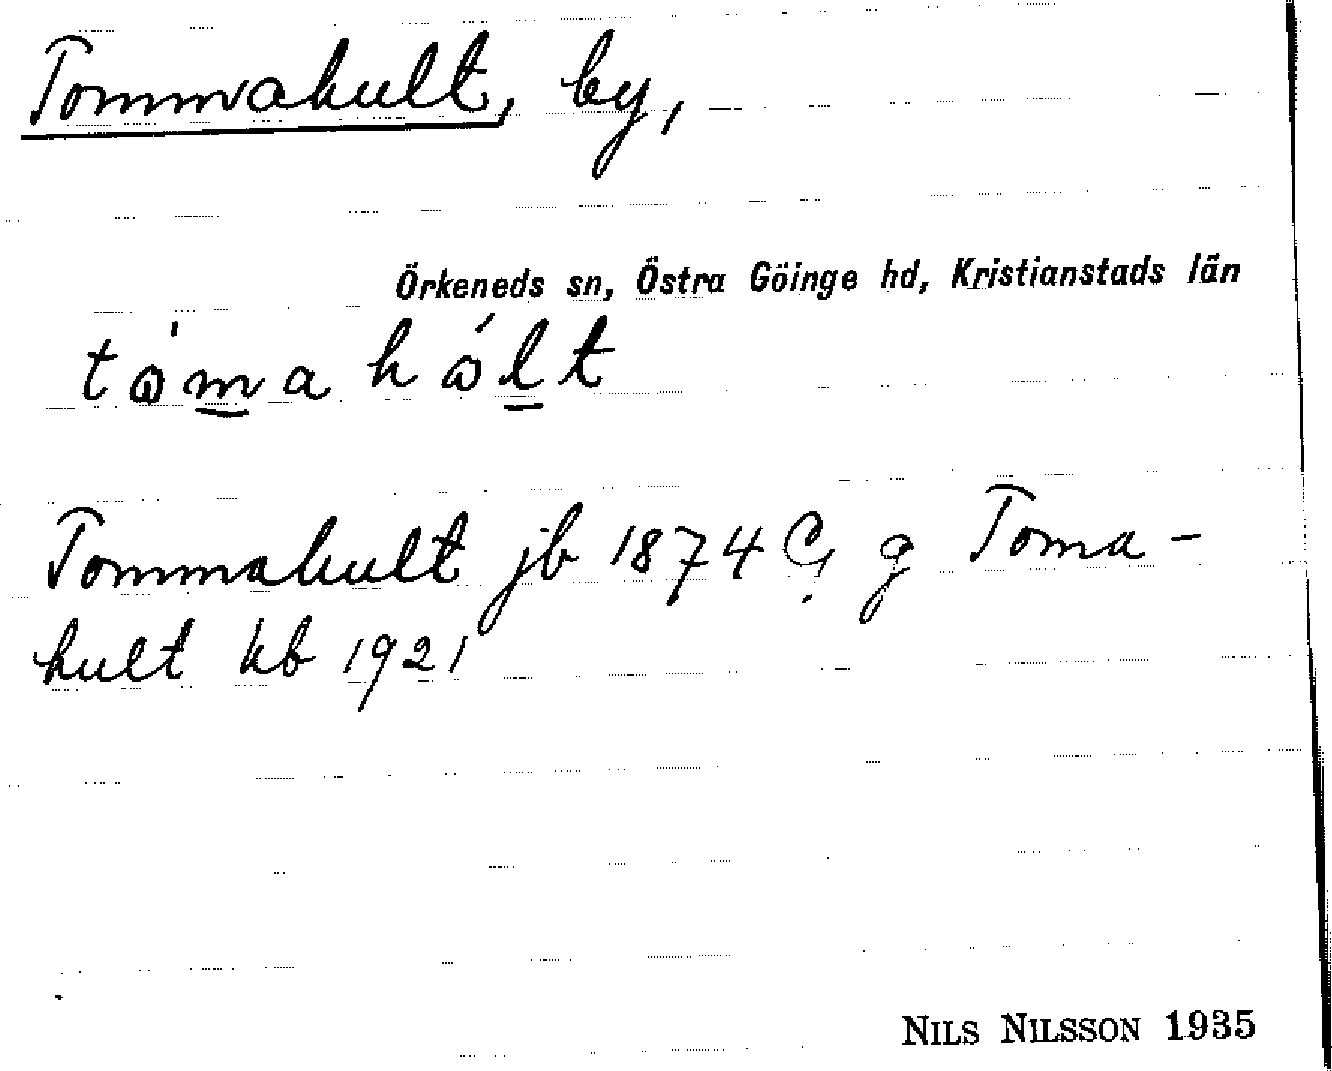 Tommahult, by,
Örkeneds sn, Östra Göinge hd, Kristianstads län
tòmahólt
Tommahult jb 1874 G, g Toma-
hult kb 1921
NILS NILSSON 1935